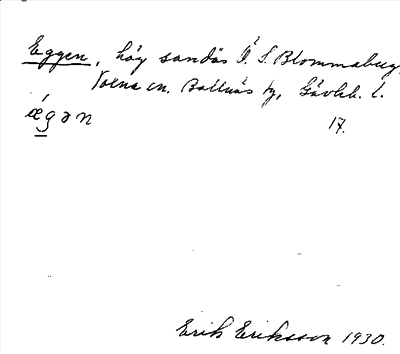 Eggen, hög sandås i S. Blommaberg,
Torna cn. Bollnäs hg, Gävleb. l.
ǽgən 17.
Erik Eriksson 1930.